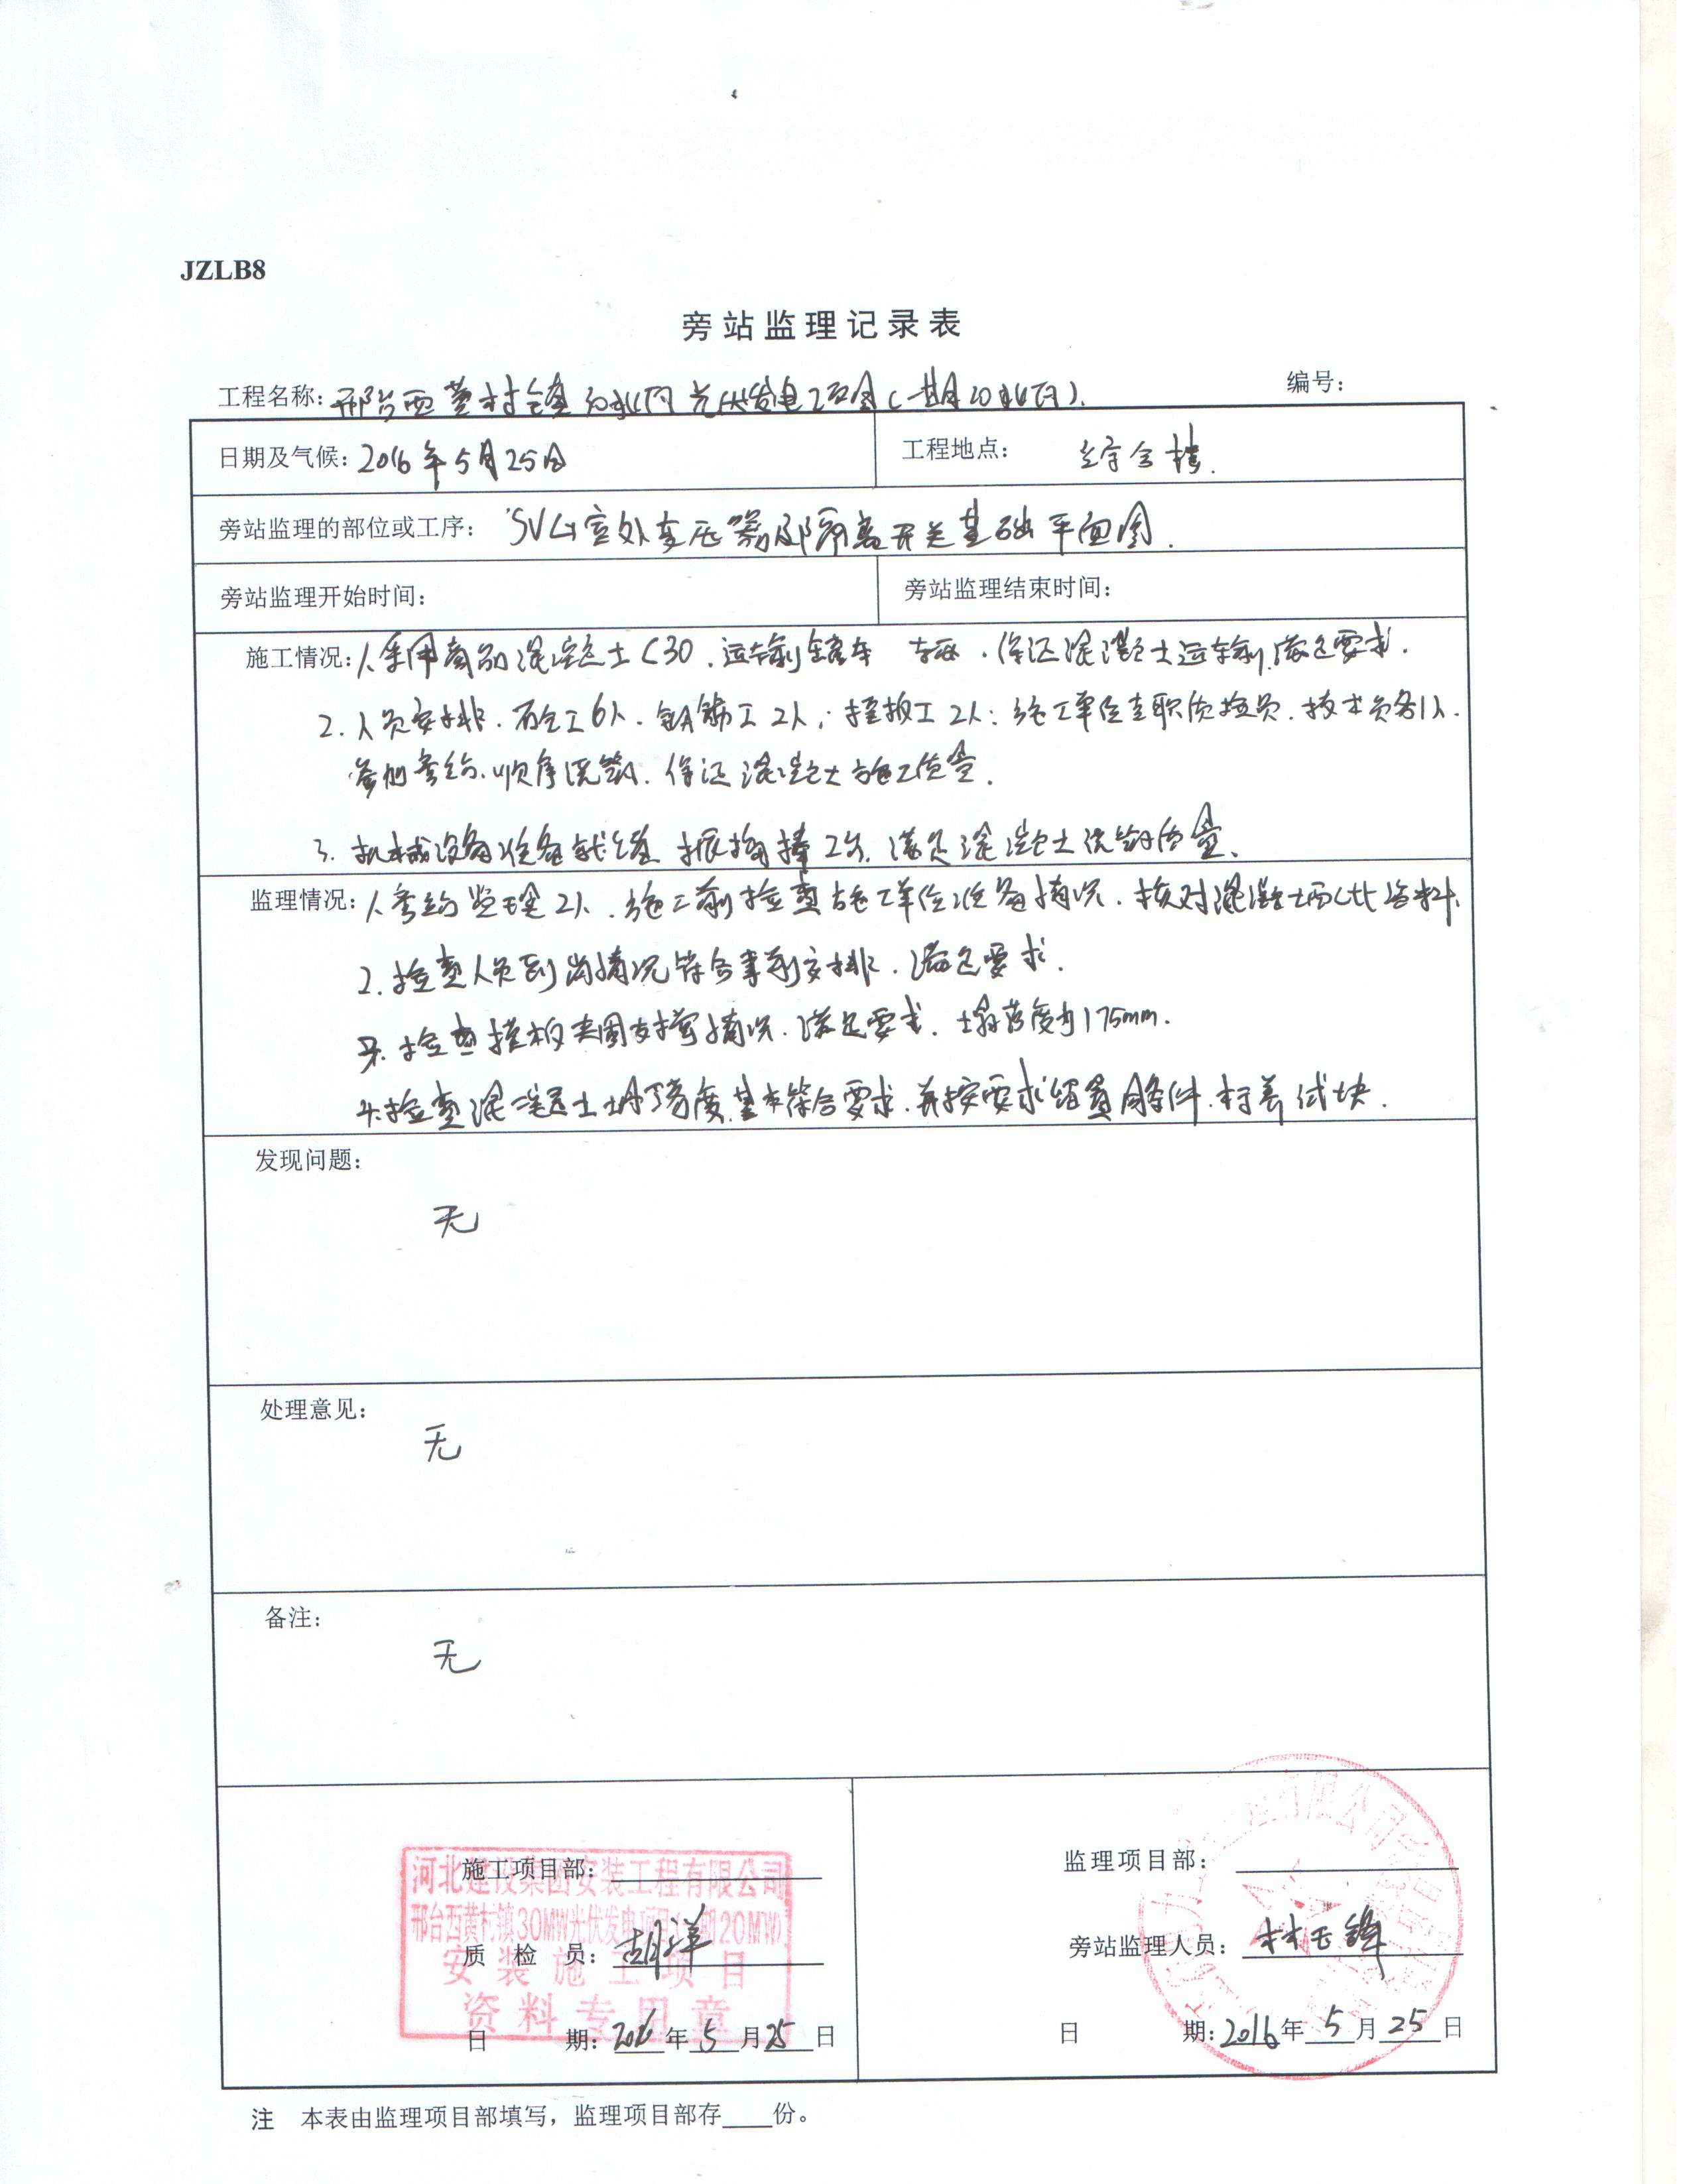 JZLB8
旁站监理记录表
工程名称：邢台西黄村镇30MW光伏发电项目（一期20MW）．
编号：
日期及气候：2016年5月25日
工程地点：综合楼．
旁站监理的部位或工序：SVG室外变压器及隔离开关基础平面图．
旁站监理开始时间：
旁站监理结束时间：
施工情况：1.采用商品混凝土C30．运输罐车 车辆．保证混凝土运输，满足要求．
2.人员安排．砼工6人．钢筋工2人；模板工2人；施工单位专职质检员．技术员各1人．
参加 顺序浇筑．保证混凝土施工质量．
3.机械设备准备就绪 振捣棒2台．满足混凝土浇筑质量．
监理情况：1. 监理2人．施工前检查施工单位准备情况．核对混凝土配比资料．
2.检查人员到岗情况符合事前安排．满足要求．
3.检查模板 支撑情况．满足要求．塌落度为175mm．
4.检查混凝土塌落度．基本符合要求．并按要求留置同条件．标养试块．
发现问题：
无
处理意见：
无
备注：
无
施工项目部：
监理项目部：
河北建设集团安装工程有限公司
邢台西黄村镇30MW光伏发电项目(一期20MW)
安装施工项目
资料专用章
质检员：胡洋
旁站监理人员：林玉锋
日期：2016年5月25日
日期：2016年5月25日
注 本表由监理项目部填写，监理项目部存____份。